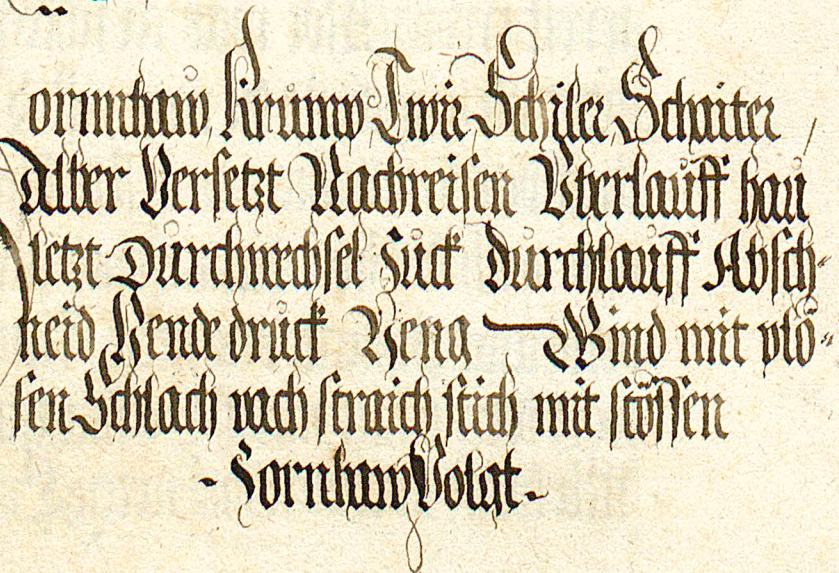 ornnhaw Krump Twir Schiler Schaiter
Alber Versetzt Nachreisen Vberlauff hau
letzt Durchwechsel Zuck durchlauff Absch-
neid Hende druck Heng Wind mit plö-
sen Schlach vach straich stich mit stössen
- Zornhaw Volgt -